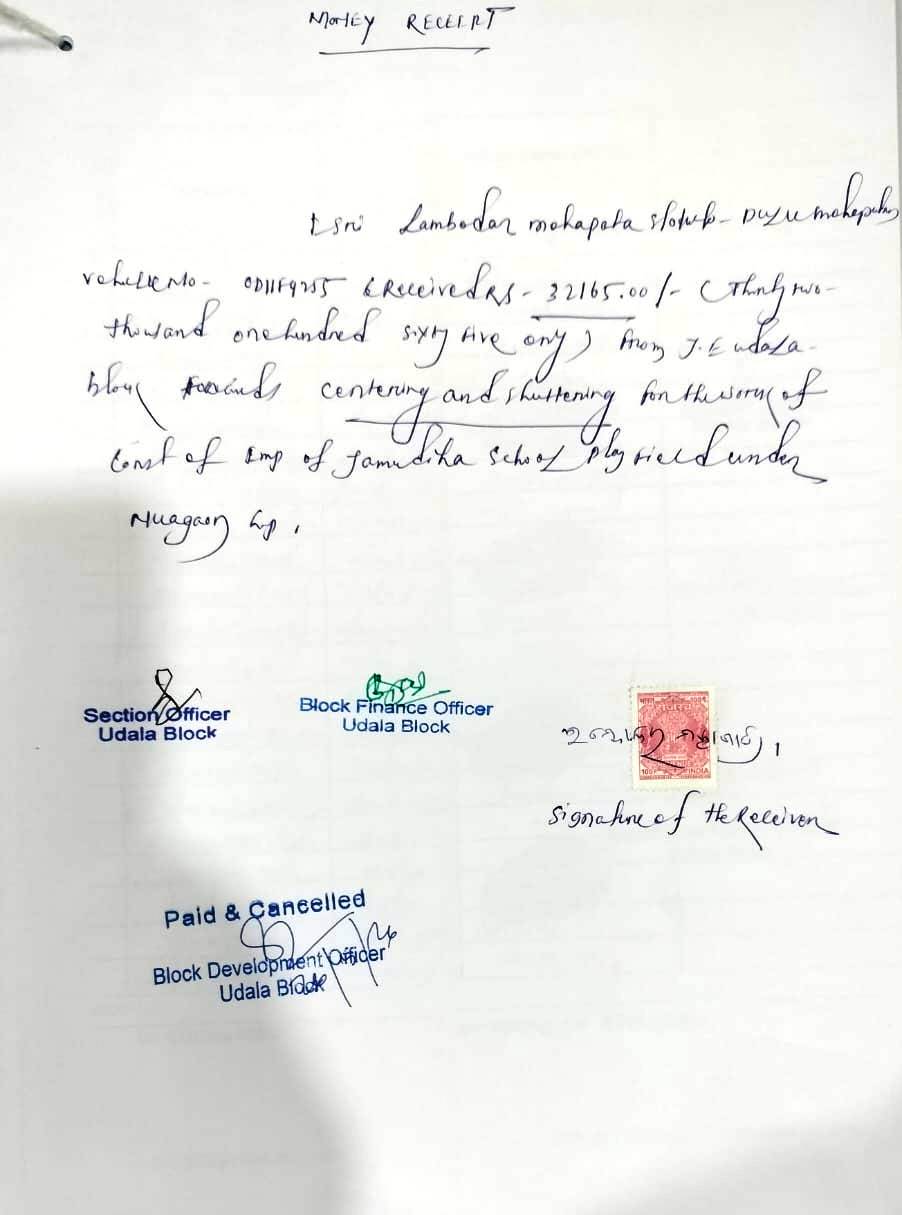 MONEY RECEIPT
I Sri Lambodar mahapata
vehicle No- OD11F9255 Received RS - 32165.00/- (Thirty two-
thousand one hundred sixty five only) from J.E udala-
block towards centering and shuttering for the work of
Const of Imp of Jamudiha School Play field under
Nuagaon Gp.
Section Officer
Udala Block
Block Finance Officer
Udala Block
भारत
INDIA
Signature of the Receiver
Paid & Cancelled
Block Development Officer
Udala Block